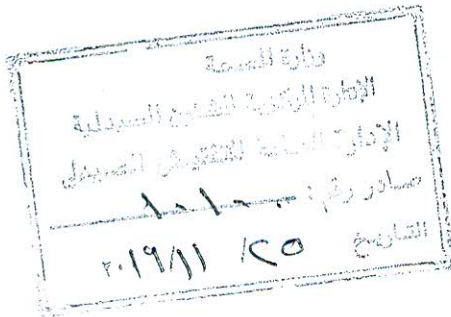 وزارة الصحة
الإدارة المركزية للشئون الصيدلية
الإدارة العامة للتفتيش الصيدلى
صادر رقم :
التاريخ ٢٥ / ١١ / ٢٠١٩